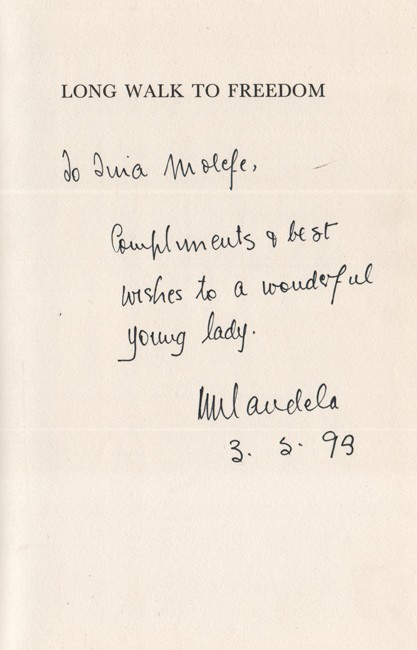 LONG WALK TO FREEDOM
To Tinia Molefe,
Compliments & best
wishes to a wonderful
young lady.
NMandela
3. 5. 99